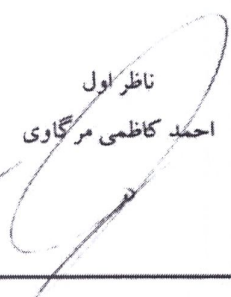 ناظر اول
احمد کاظمی مرگاوی